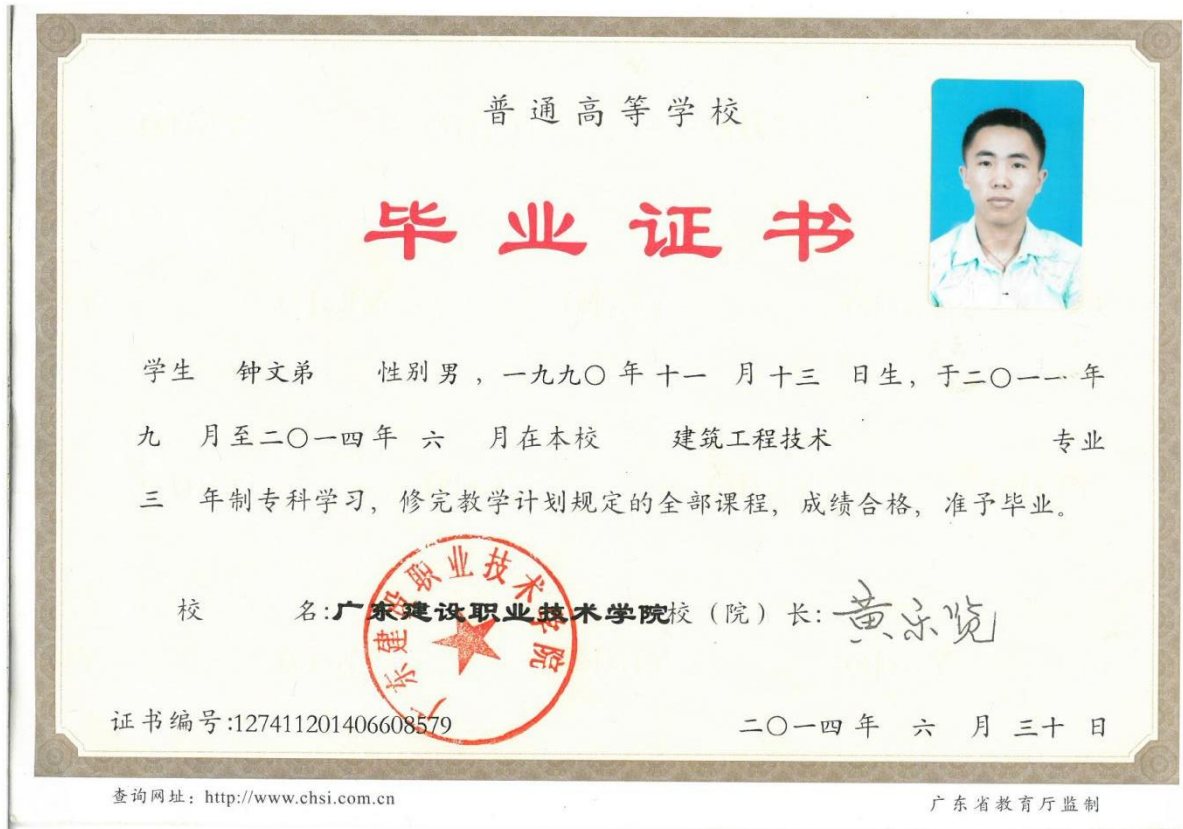 普通高等学校
毕业证书
学生 钟文弟 性别 男 ，一九九〇 年 十一 月 十三 日生，于二〇一一 年
九 月至二〇一四 年 六 月在本校 建筑工程技术 专业
三 年制专科学习，修完教学计划规定的全部课程，成绩合格，准予毕业。
广东建设职业技术学院
校 名:广东建设职业技术学院校（院）长:
证书编号:127411201406608579 二〇一四 年 六 月 三十 日
查询网址：http://www.chsi.com.cn 广东省教育厅监制